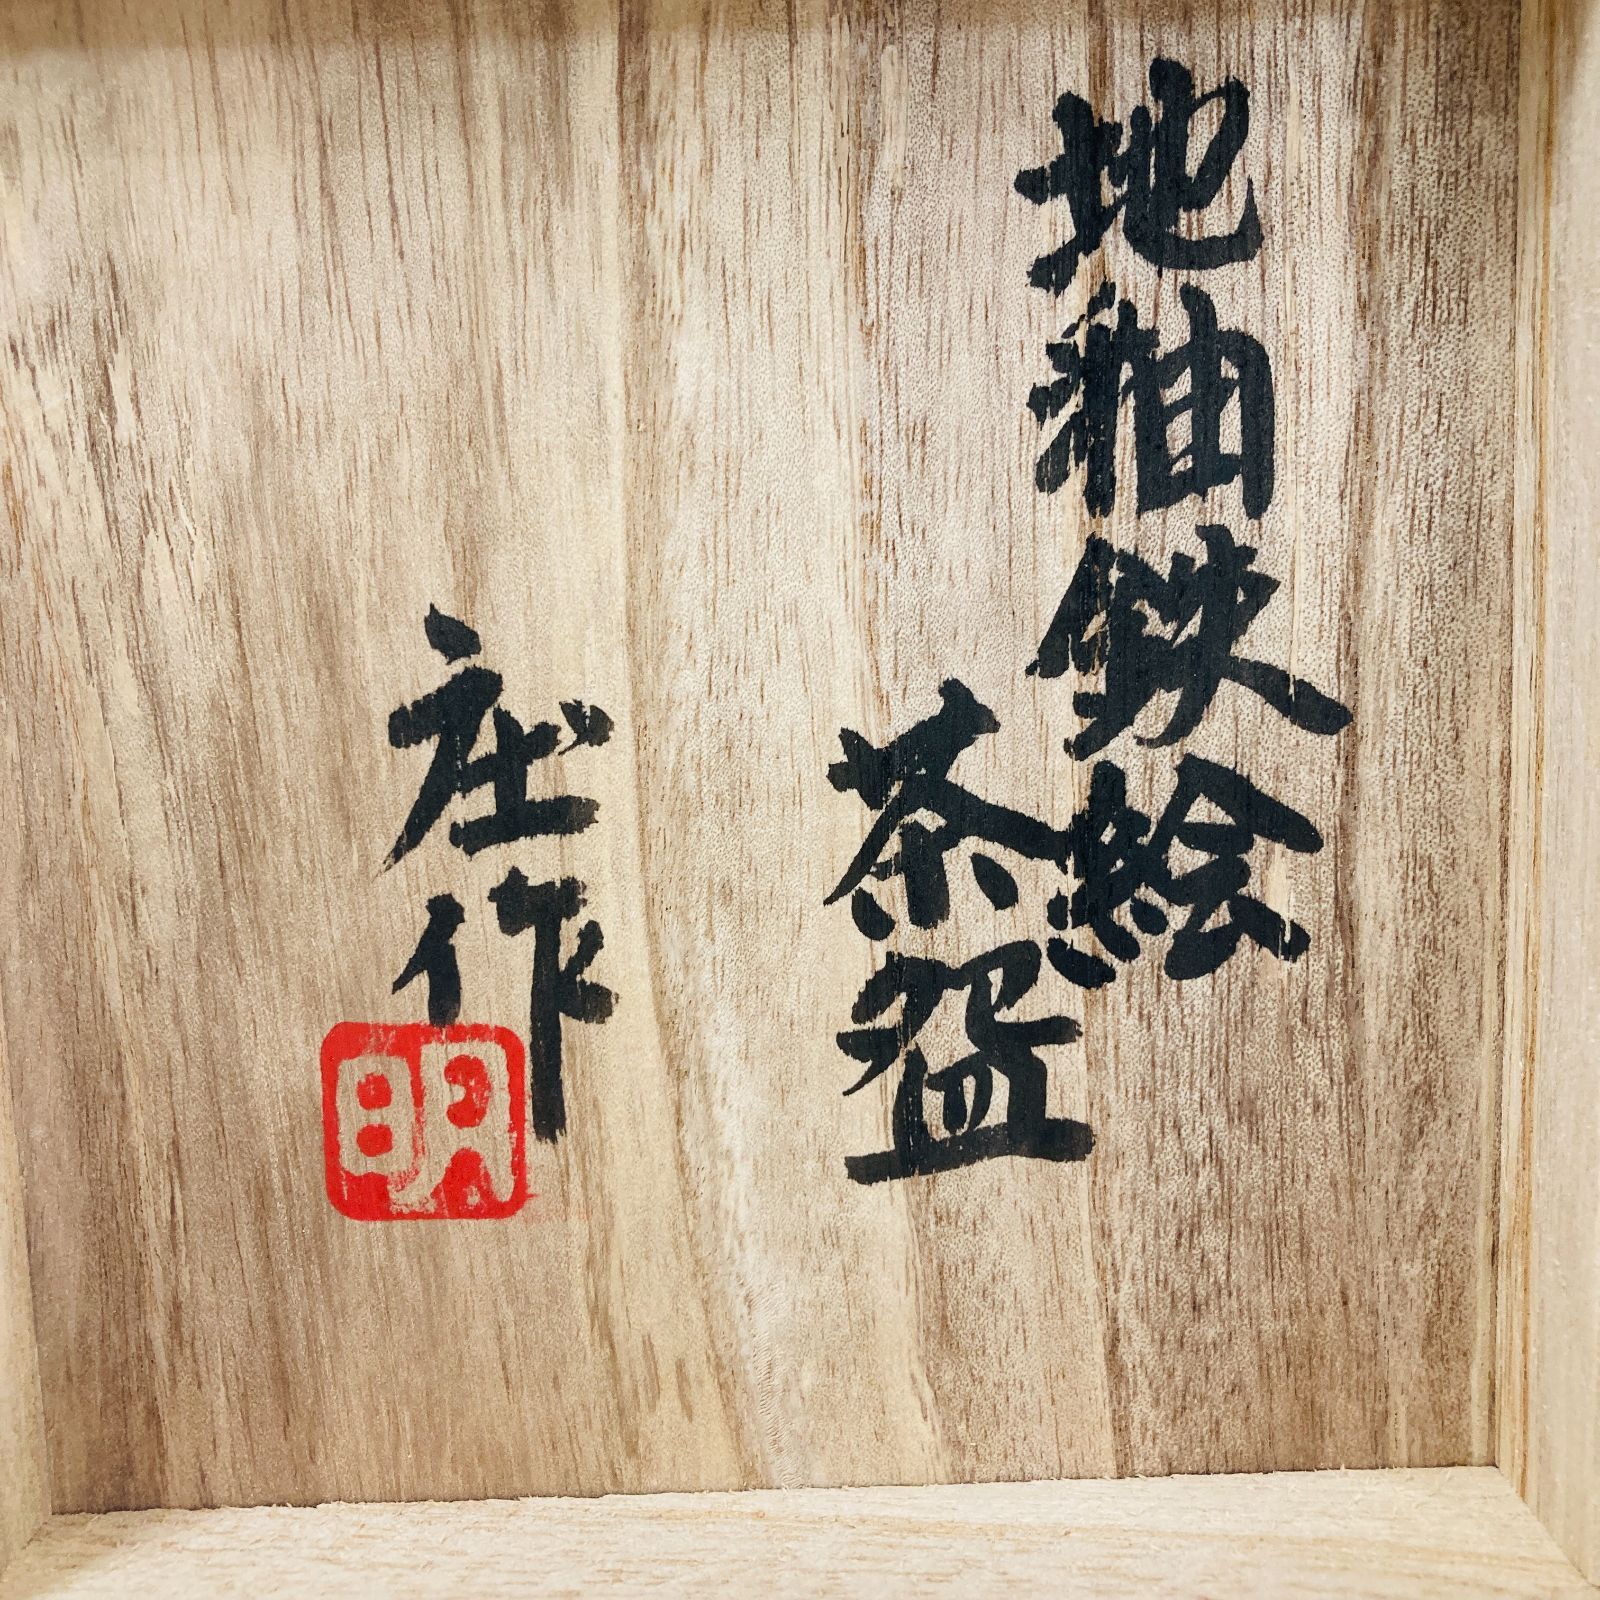 地釉鉄絵
茶盌
庄作
明